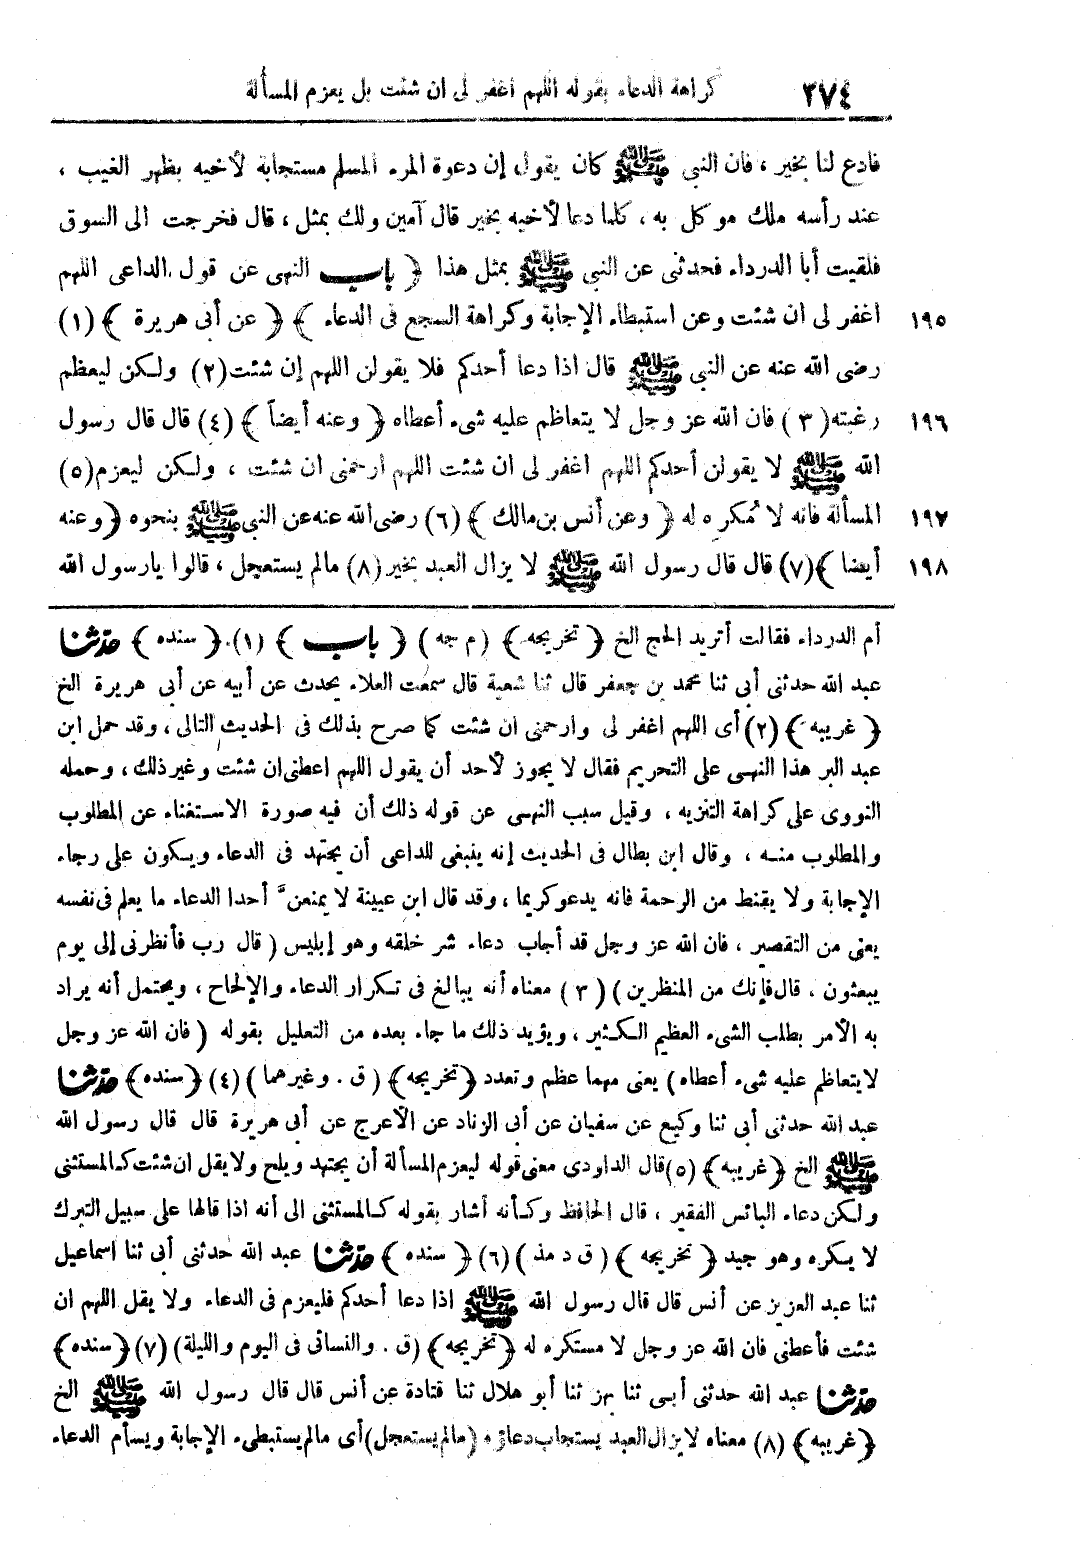 ٢٧٤ كراهة الدعاء بقوله اللهم اغفر لى ان شئت بل يعزم المسألة
فادع لنا بخير ، فان النبى ﷺ كان يقول إن دعوة المرء المسلم مستجابة لأخيه بظهر الغيب ،
عند رأسه ملك موكل به ، كلما دعا لأخيه بخير قال آمين ولك بمثل ، قال فخرجت الى السوق
فلقيت أبا الدرداء فحدثنى عن النبى ﷺ بمثل هذا ﴿ باب النهى عن قول الداعى اللهم
١٩٥ اغفر لى ان شئت وعن استبطاء الإجابة وكراهة السجع فى الدعاء ﴾ ﴿ عن أبى هريرة ﴾ (١)
رضى الله عنه عن النبى ﷺ قال اذا دعا أحدكم فلا يقولن اللهم إن شئت (٢) ولكن ليعظم
١٩٦ رغبته (٣) فان الله عز وجل لا يتعاظم عليه شىء أعطاه ﴿ وعنه أيضاً ﴾ (٤) قال قال رسول
الله ﷺ لا يقولن أحدكم اللهم اغفر لى ان شئت اللهم ارحمنى ان شئت ، ولكن ليعزم (٥)
١٩٧ المسألة فانه لا مُكرِه له ﴿ وعن أنس بن مالك ﴾ (٦) رضى الله عنه عن النبى ﷺ بنحوه ﴿ وعنه
١٩٨ أيضا ﴾ (٧) قال قال رسول الله ﷺ لا يزال العبد بخير (٨) مالم يستعجل ، قالوا يارسول الله
أم الدرداء فقالت أتريد الحج الخ ﴿ تخريجه ﴾ (م جه) ﴿ باب ﴾ (١) ﴿ سنده ﴾ حدّثنا
عبد الله حدثنى أبى ثنا محمد بن جعفر قال ثنا شعبة قال سمعت العلاء يحدث عن أبيه عن أبى هريرة الخ
﴿ غريبه ﴾ (٢) أى اللهم اغفر لى وارحمنى ان شئت كما صرح بذلك فى الحديث التالى ، وقد حمل ابن
عبد البر هذا النهى على التحريم فقال لا يجوز لأحد أن يقول اللهم اعطنى ان شئت وغير ذلك ، وحمله
النووى على كراهة التنزيه ، وقيل سبب النهى عن قوله ذلك أن فيه صورة الاستغناء عن المطلوب
والمطلوب منه ، وقال ابن بطال فى الحديث إنه ينبغى للداعى أن يجتهد فى الدعاء ويكون على رجاء
الإجابة ولا يقنط من الرحمة فانه يدعو كريما ، وقد قال ابن عيينة لا يمنعنّ أحدا الدعاء ما يعلم فى نفسه
يعنى من التقصير ، فان الله عز وجل قد أجاب دعاء شر خلقه وهو إبليس ( قال رب فأنظرنى إلى يوم
يبعثون ، قال فإنك من المنظرين ) (٣) معناه أنه يبالغ فى تكرار الدعاء والإلحاح ، ويحتمل أنه يراد
به الأمر بطلب الشىء العظيم الكثير ، ويؤيد ذلك ما جاء بعده من التعليل بقوله ( فان الله عز وجل
لا يتعاظم عليه شىء أعطاه ) يعنى مهما عظم وتعدد ﴿ تخريجه ﴾ ( ق . وغيرهما ) (٤) ﴿ سنده ﴾ حدّثنا
عبد الله حدثنى أبى ثنا وكيع عن سفيان عن أبى الزناد عن الأعرج عن أبى هريرة قال قال رسول الله
ﷺ الخ ﴿ غريبه ﴾ (٥) قال الداودى معنى قوله ليعزم المسألة أن يجتهد ويلح ولا يقل ان شئت كالمستثنى
ولكن دعاء البائس الفقير ، قال الحافظ وكأنه أشار بقوله كالمستثنى الى أنه اذا قالها على سبيل التبرك
لا يكره وهو جيد ﴿ تخريجه ﴾ ( ق د مذ ) (٦) ﴿ سنده ﴾ حدّثنا عبد الله حدثنى أبى ثنا اسماعيل
ثنا عبد العزيز عن أنس قال قال رسول الله ﷺ اذا دعا أحدكم فليعزم فى الدعاء ولا يقل اللهم ان
شئت فأعطنى فان الله عز وجل لا مستكره له ﴿ تخريجه ﴾ (ق . والنسائى فى اليوم والليلة) (٧) ﴿ سنده ﴾
حدّثنا عبد الله حدثنى أبى ثنا بهز ثنا أبو هلال ثنا قتادة عن أنس قال قال رسول الله ﷺ الخ
﴿ غريبه ﴾ (٨) معناه لا يزال العبد يستجاب دعاؤه (مالم يستعجل) أى مالم يستبطىء الإجابة ويسأم الدعاء